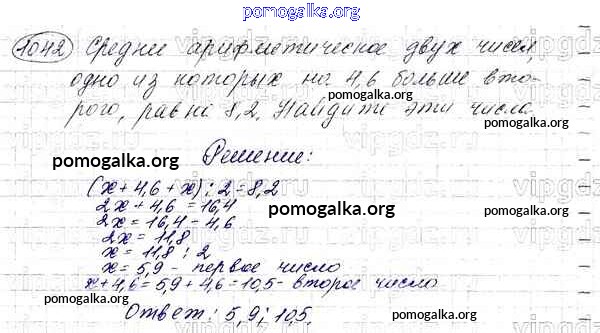 pomogalka.org
1042 Среднее арифметическое двух чисел,
одно из которых на 4,6 больше вто-
рого, равно 8,2. Найдите эти числа.
pomogalka.org
Решение:
pomogalka.org
(x + 4,6 + x) : 2 = 8,2
2x + 4,6 = 16,4
2x = 16,4 - 4,6
pomogalka.org
2x = 11,8
x = 11,8 : 2
x = 5,9 - первое число
x + 4,6 = 5,9 + 4,6 = 10,5 - второе число
pomogalka.org
Ответ: 5,9; 10,5
pomogalka.org